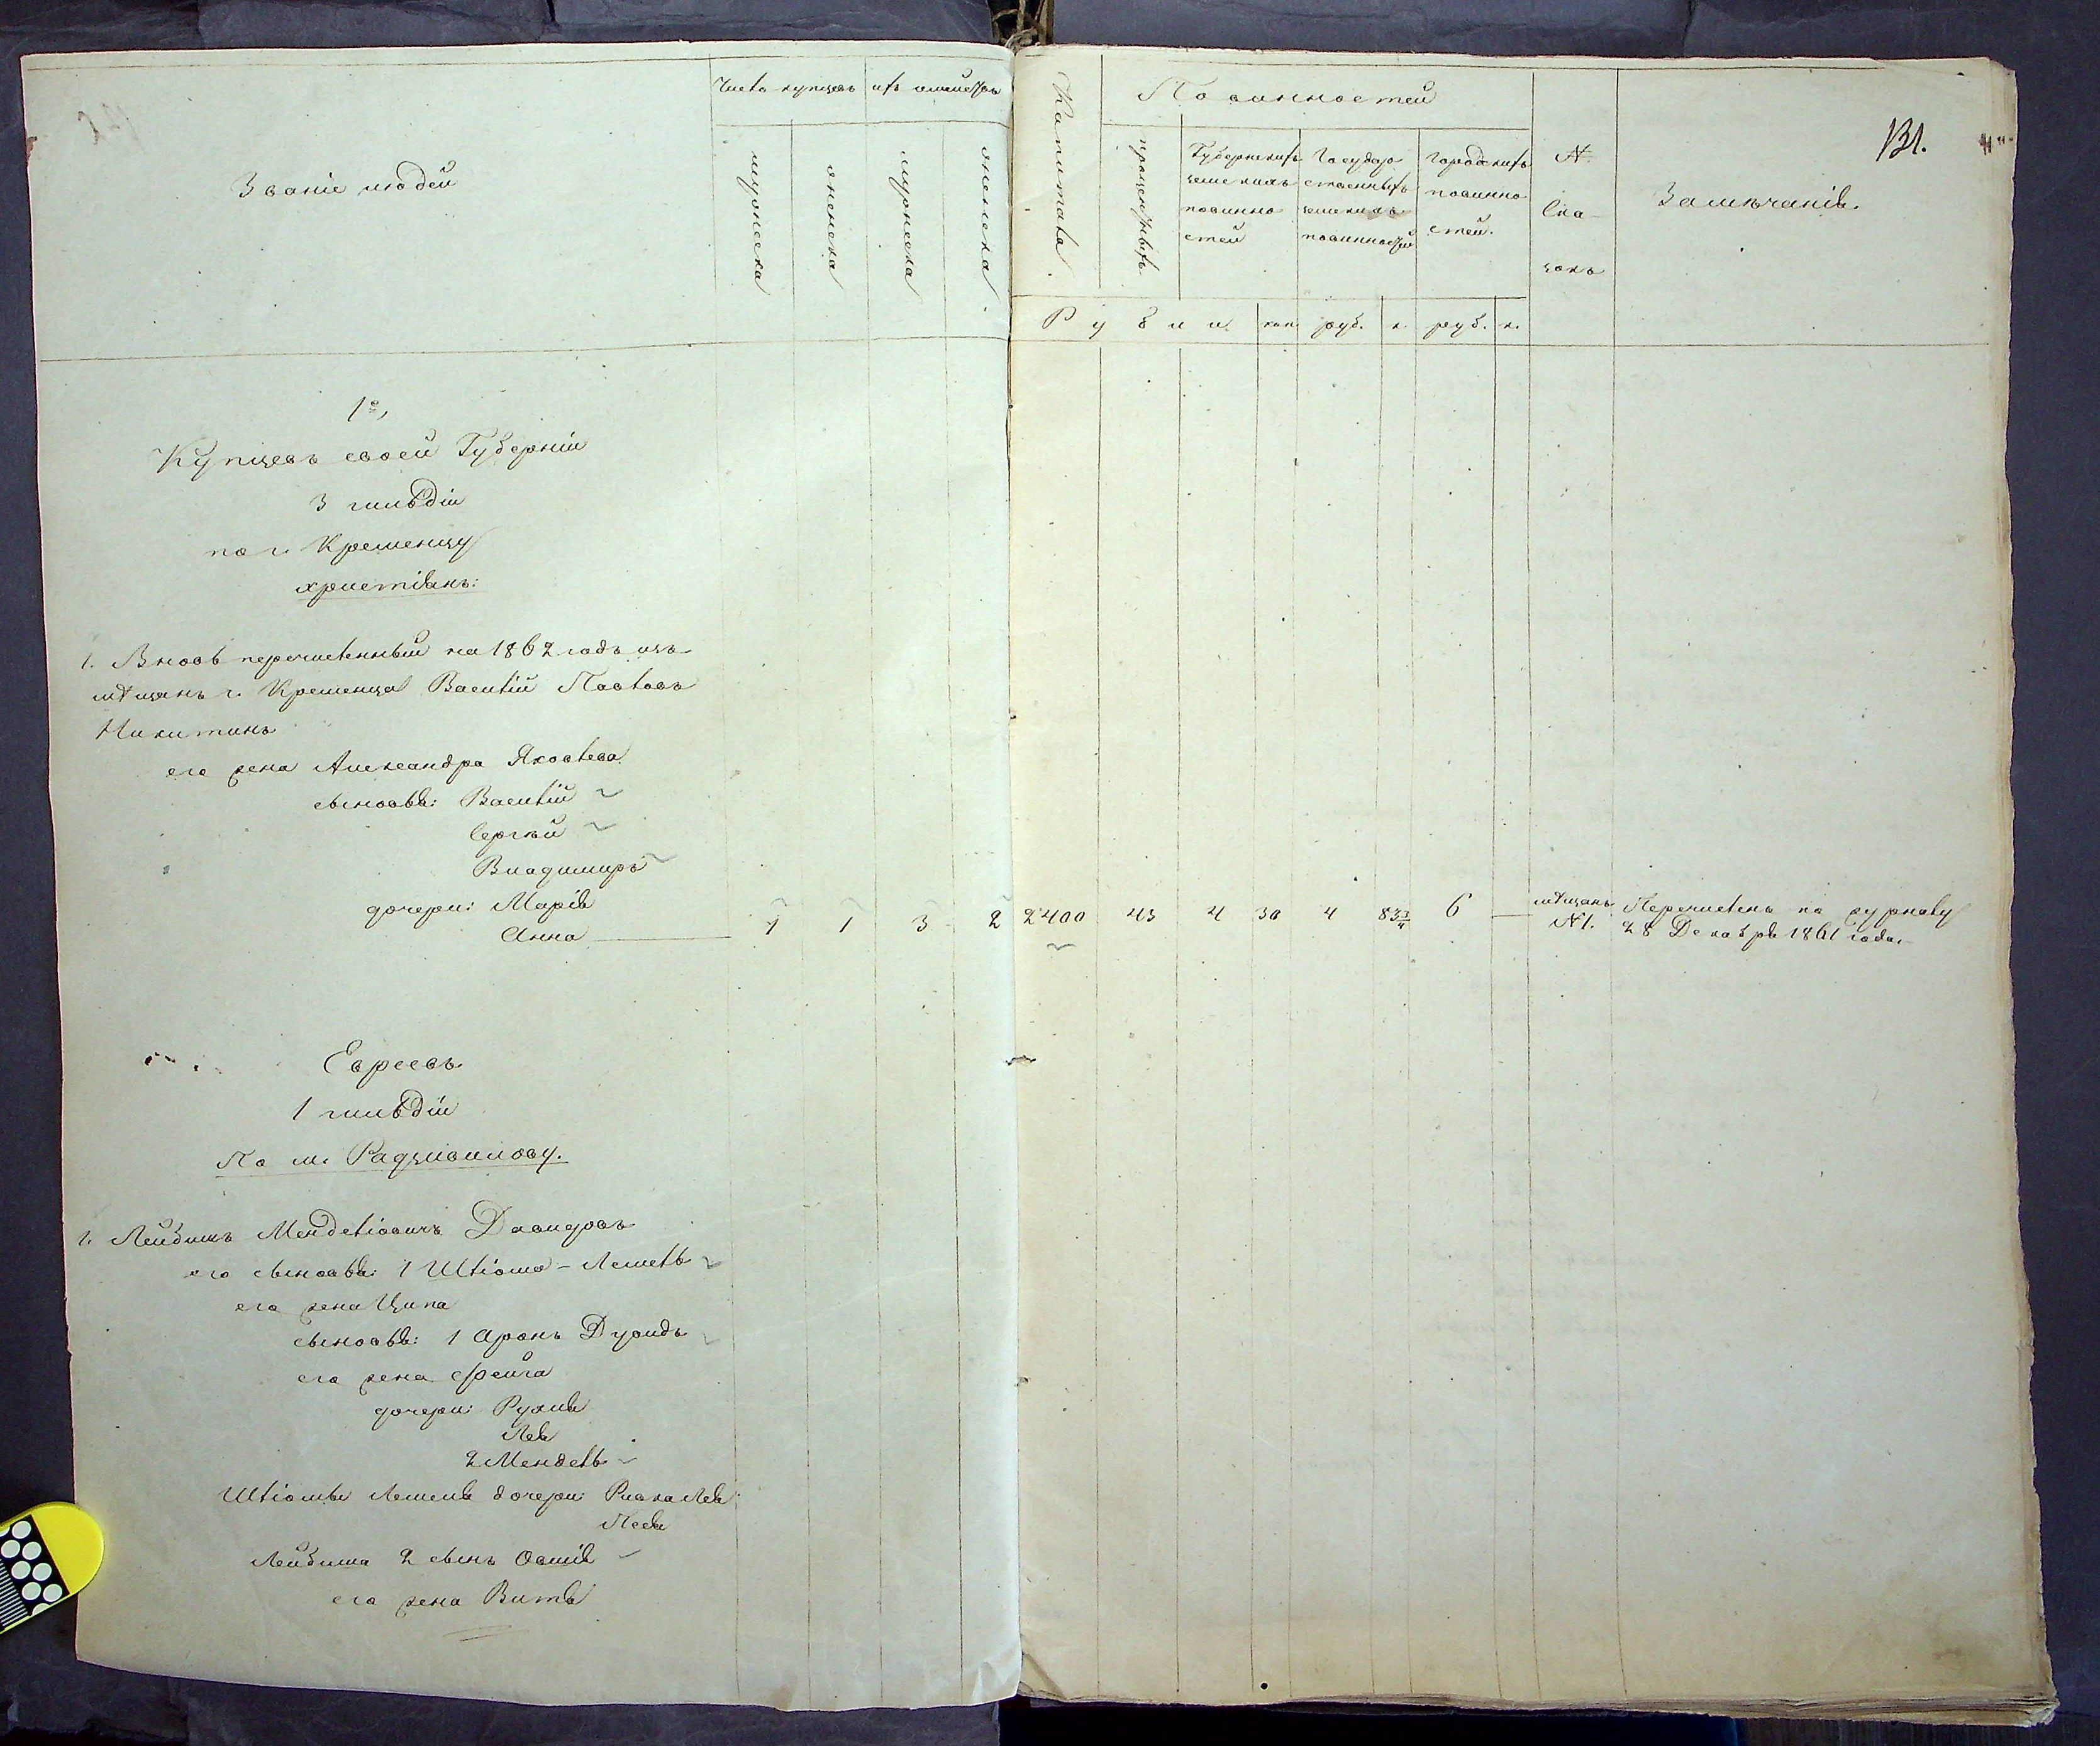 Званіе людей
Число купцовъ
ихъ семействъ
мужеска
женска
мужеска
женска
Капитала
Повинностей
процентныхъ
Губернскихъ земскихъ повинностей
Государственныхъ земскихъ повинностей
Городскихъ повинностей.
№ Сказокъ
131.
Замѣчанія.
Рубли
коп
руб.
к.
руб.
к.
1е,
Купцовъ своей Губерніи
3 гильдіи
по г. Кременцу
христіянъ:
1. Вновь перечисленный на 1862 годъ изъ
мѣщанъ г. Кременца Василій Павловъ
Никитинъ
его жена Александра Яковлева
сыновья: Василій
Сергѣй
Владимиръ
дочери: Марія
Анна 1 1 3 2 2400 43 4 30 4 83 3/4 6 — мѣщанъ Перечисленъ по журналу
№ 1. 28 Декабря 1861 года.
Евреевъ
1 гильдіи
По м. Радзивилову.
1. Лейбишъ Менделіовичъ Давидовъ
его сыновья: 1 Шліома-Лемель
его жена Ципа
сыновья: 1 Аронъ Дувидъ
его жена Фейга
дочери: Рухля
Лея
2 Мендель
Шліомы Лемеля дочери: Ривка Лея
Песя
Лейбиша 2 сынъ Овшія
его жена Витя